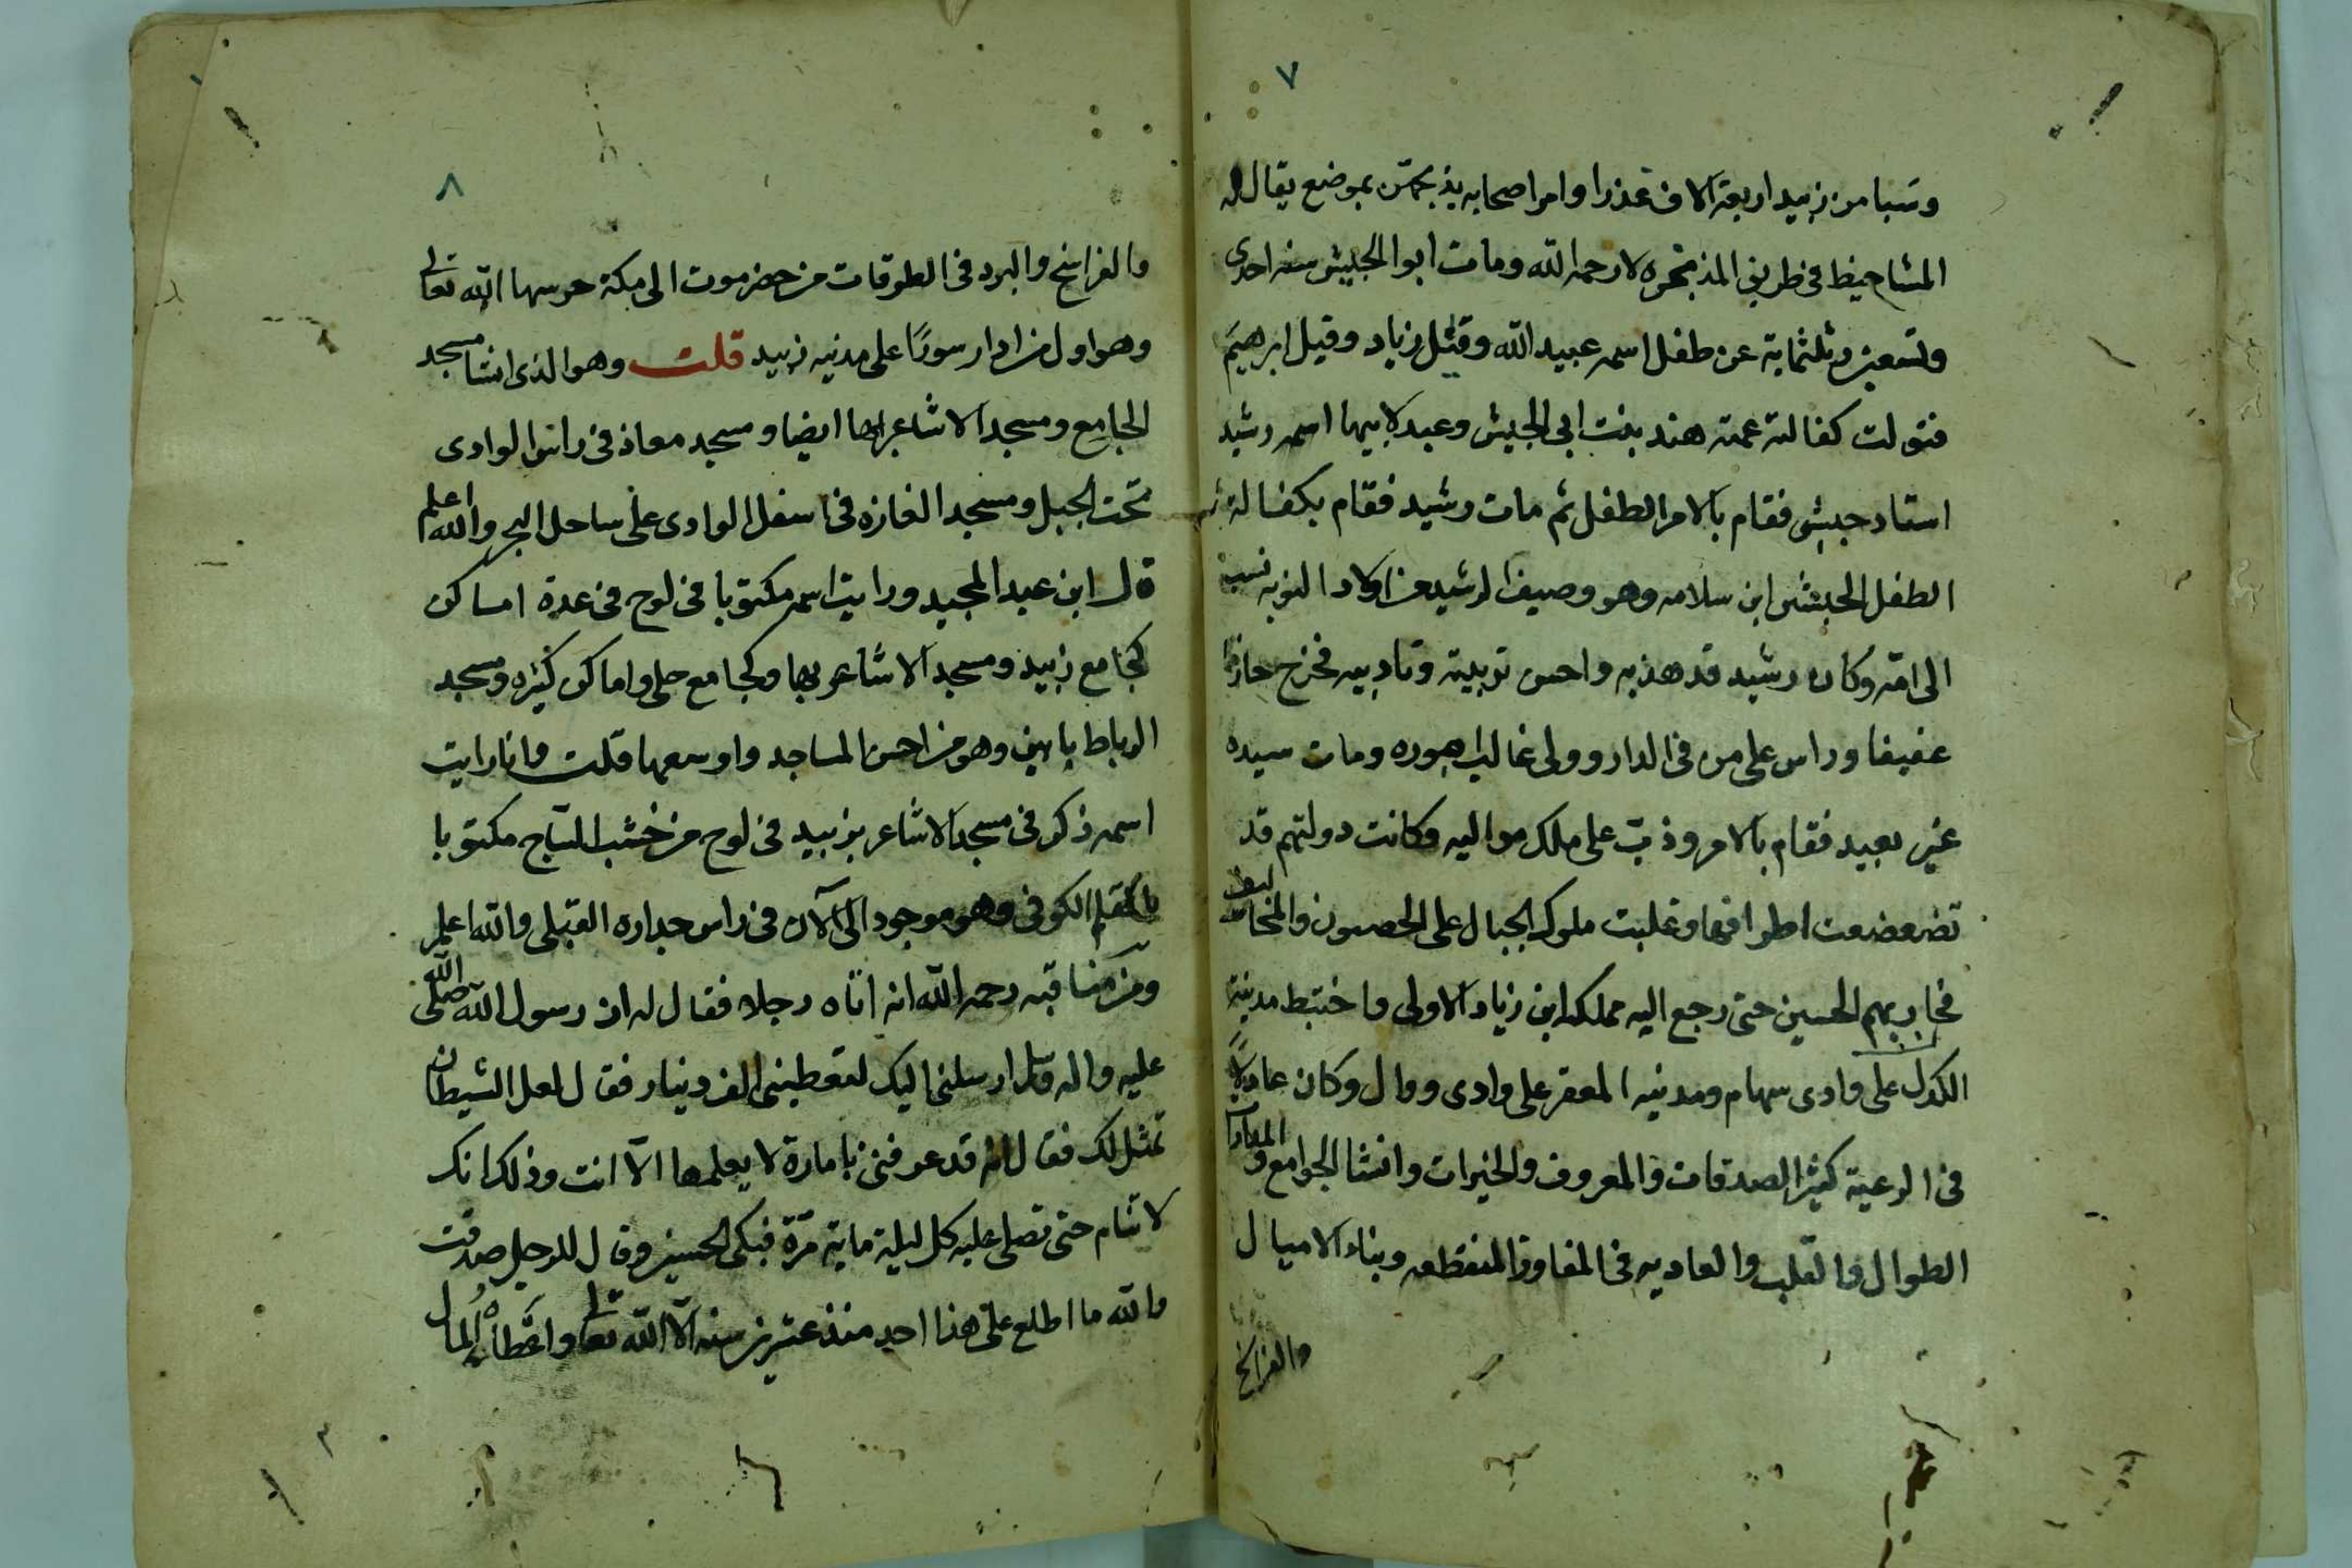 ٧
وسبا من زبيد اربعة الاف عذرا وامر اصحابه بذبحهن بموضع يقال له
المشاحيط في طريق المذيخره لا رحمه الله ومات ابو الجيش سنه احدى
وتسعين وثلثماية عن طفل اسمه عبيد الله وقيل زياد وقيل ابرهيم
فتولت كفالته عمته هند بنت ابي الجيش وعبد لابيها اسمه رشيد
استاد حبشي فقام بالامر الطفل ثم مات رشيد فقام بكفالة
الطفل الحبشى ابن سلامه وهو وصيف لرشيد من اولاد النوبه نسبة
الى امه وكان رشيد قد هذبه واحسن تربيته وتاديبه فخرج حازما
عفيفا وراس على من في الدار وولى غالب اموره ومات سيده
غير بعيد فقام بالامر وذب على ملك مواليه وكانت دولتهم قد
تضعضعت اطرافها وغلبت ملوك الجبال على الحصون والمخاليف
فحاربهم الحسين حتى رجع اليه مملكة ابن زياد الاولى واختط مدينة
الكدرا على وادى سهام ومدنيه المعقر على وادى ووال وكان عادلا
في الرعية كثير الصدقات والمعروف والخيرات وانشا الجوامع و
الطوال والقلب والعاديه في المفاوز المنقطعه وبناء الاميال
والفراسخ
٨
والفراسخ والبرد في الطرقات من حضرموت الى مكة حرسها الله تعالى
وهو اول من ادار سورًا على مدنيه زبيد قلت وهو الذى انشا مسجد
الجامع ومسجد الاشاعر بها ايضا ومسجد معاذ في راس الوادى
تحت الجبل ومسجد الفازه في اسفل الوادى على ساحل البحر والله اعلم
قال ابن عبد المجيد ورايت اسمه مكتوبا في لوح في عدة اماكن
كجامع زبيد ومسجد الاشاعر بها وكجامع حلى واماكن كثيره ومسجد
الرباط بابين وهو من احسن المساجد واوسعها قلت وانا رايت
اسمه ذكر في مسجد الاشاعر بزبيد في لوح من خشب الساج مكتوبا
بالقلم الكوفى وهو موجود الى الآن في راس جداره القبلى والله اعلم
ومن مناقبه رحمه الله انه اتاه رجلا فقال له ان رسول الله صلى الله
عليه واله وسلم ارسلنى اليك لتعطينى الف دينار فقال لعل الشيطان
تمثل لك فقال انه قد عرفنى بامارة لا يعلمها الا انت وذلك انك
لا تنام حتى تصلى عليه كل ليلة ماية مرة فبكى الحسين وقال للرجل صدقت
والله ما اطلع على هذا احد منذ عشرين سنه الا الله تعالى واعطاه المال